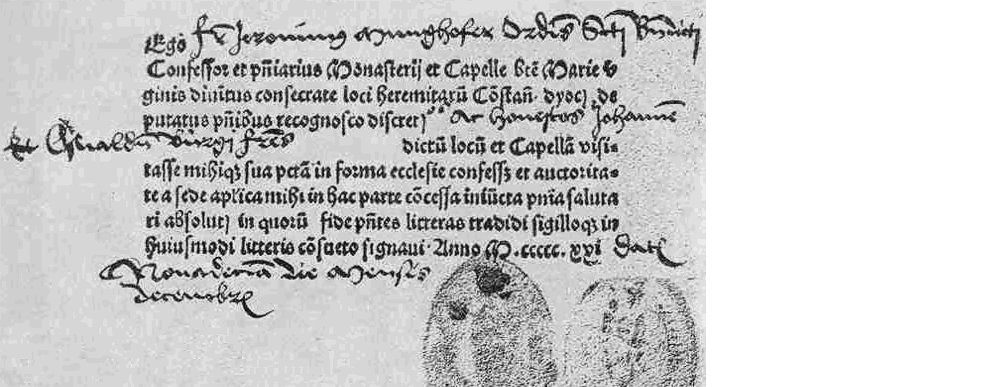 Ego fr̄ Jeronimus Munghofer Ordīs Scti Bn̄dicti
Confessor et pn̄iarius Monasterij et Capelle btē Marie v̓
ginis diuinitus consecrate loci heremitarū Cōstan̄. dyoc̄. de
putatus pn̄ibus recognosco discretꝭ Ac honestos Johannē
et Osualdū Bürgi frēs dictū locū et Capellā visi⸗
tasse mihiqꝫ sua pctā in forma ecclesie confessꝭ et auctorita⸗
te a sede aplica mihi in hac parte cōcessa iniūcta pn̄ia saluta
ri absolutꝭ in quorū fide pn̄tes litteras tradidi sigilloqꝫ in
huiusmodi litteris cōsueto signaui. Anno M.ccccc. xxi
die Mensis
decembrꝭ